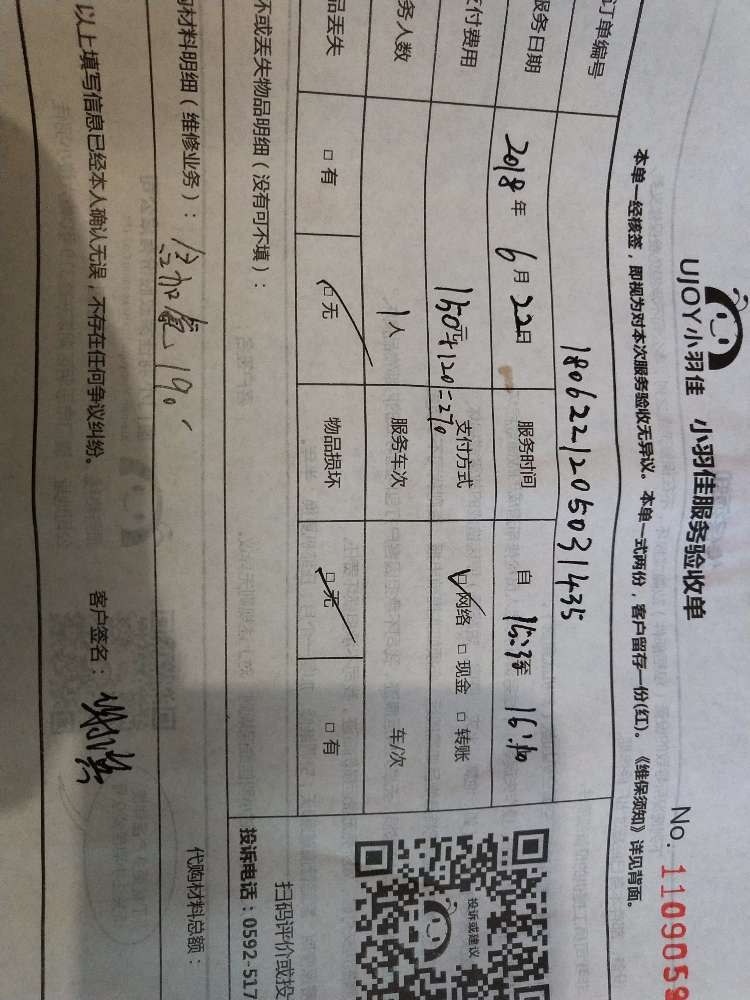 UJOY小羽佳 小羽佳服务验收单
No. 1109059
本单一经核签，即视为对本次服务验收无异议。本单一式两份，客户留存一份(红)。《维保须知》详见背面。
订单编号 180622120503 1435
服务日期 2018年 6月 22日 服务时间 自 15:3 至 16:40
支付费用 150元+120=270 支付方式 ☑网络 □现金 □转账
务人数 1人 服务车次 车/次
品丢失 □有 ☑无 物品损坏 ☑无 □有
坏或丢失物品明细（没有可不填）：
投诉或建议
扫码评价或投
投诉电话：0592-517
购材料明细（维修业务）： 全加氟190
代购材料总额：
以上填写信息已经本人确认无误，不存在任何争议纠纷。 客户签名：